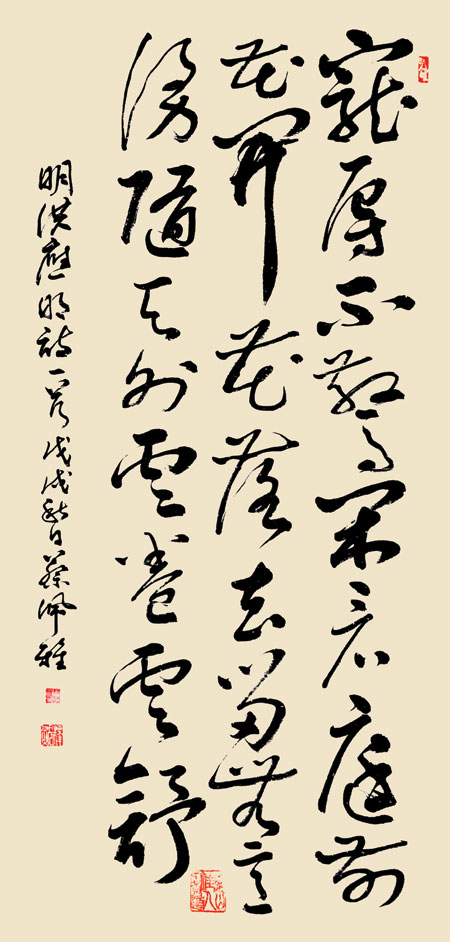 寵辱不驚閑看庭前
花開花落去留無意
漫隨天外雲卷雲舒
明洪應明詩一首戊戌秋日